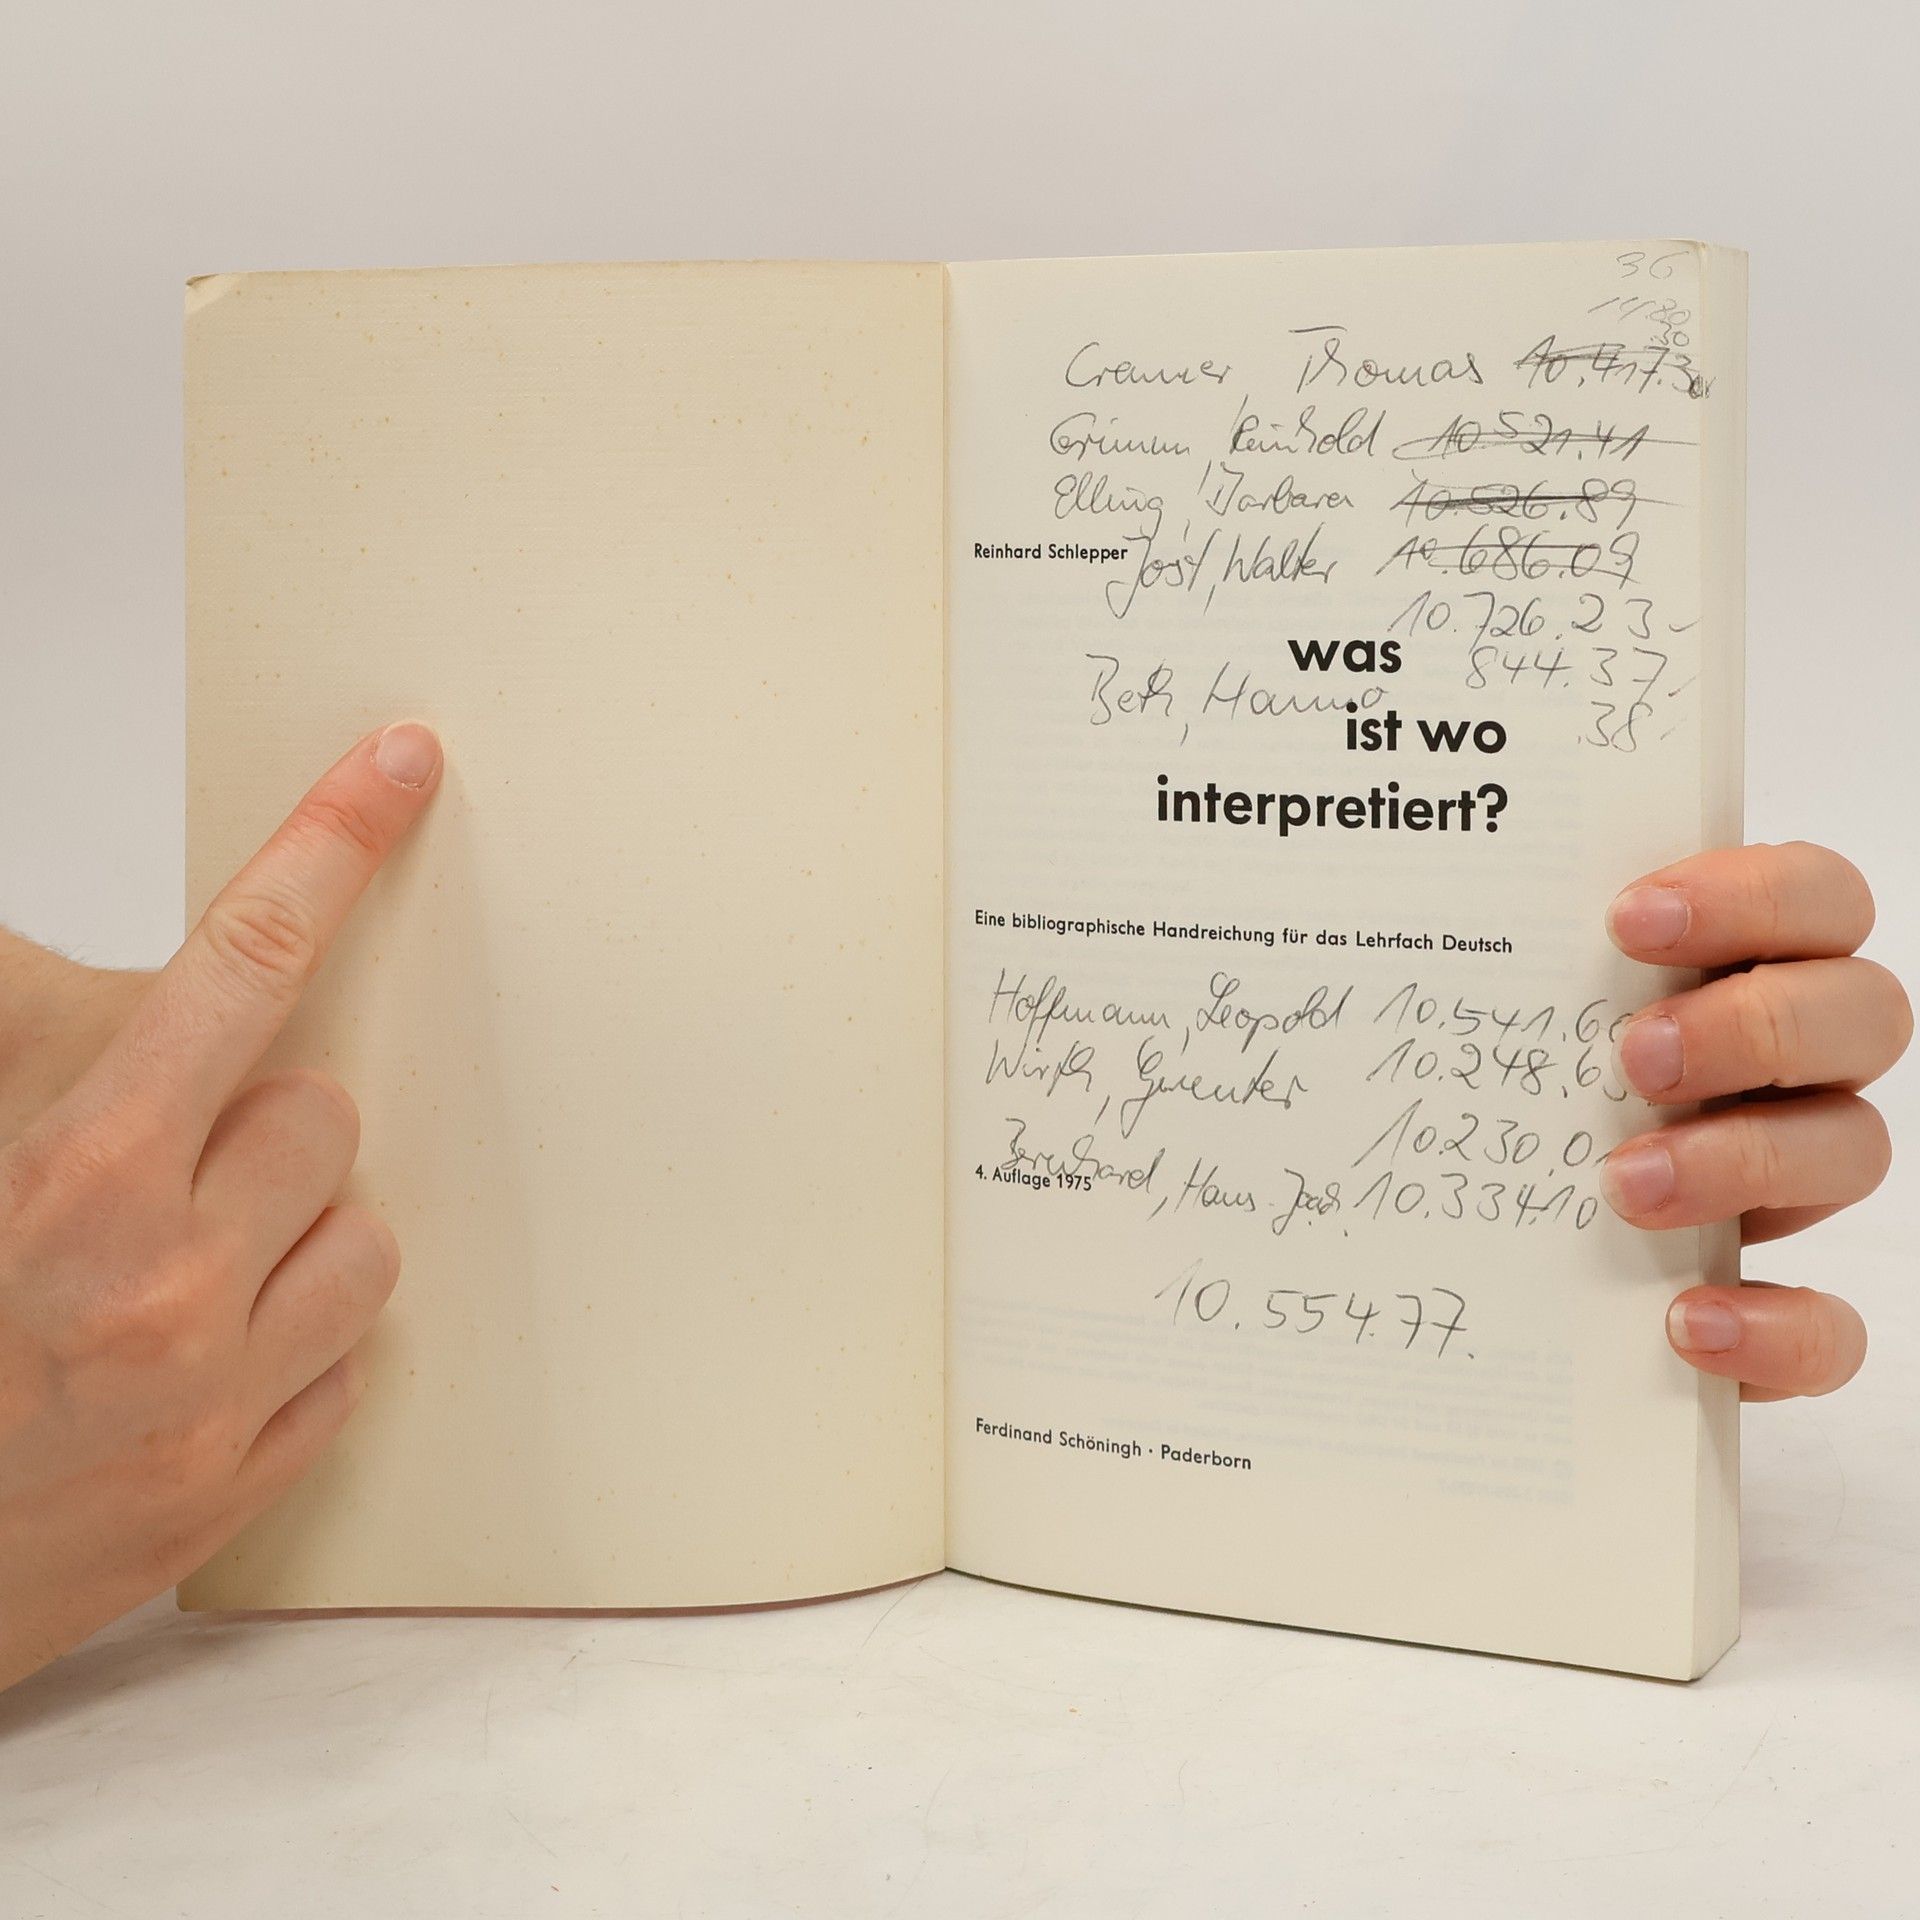 36
Cramer Thomas 10.417.3
Grimm, Reinhold 10.521.41
Elling, Barbara 10.526.89
Reinhard Schlepper
Jost, Walter 10.686.09
10.726.23-
was
844.37
Beth, Hanno
ist wo
.38
interpretiert?
Eine bibliographische Handreichung für das Lehrfach Deutsch
Hoffmann, Leopold 10.541.6
Wirth, Guenter 10.248.6
10.230.0
Bernhard, Hans 10.334.10
4. Auflage 1975
10.554.77.
Ferdinand Schöningh · Paderborn